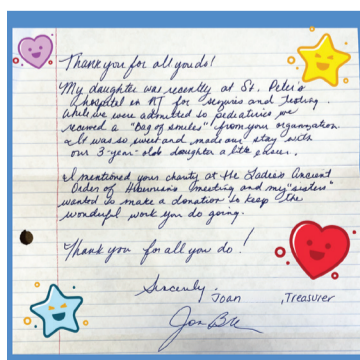 Thank you for all you do!
My daughter was recently at St. Peter's
hospital in NJ for seizures and testing.
While we were admitted to pediatrics we
received a "Bag of smiles" from your organization
It was so sweet and made our stay with
our 3-year-old daughter a little easier.
I mentioned your charity at the Ladies Ancient
Order of Hibernians meeting and my "sisters"
wanted to make a donation to keep the
wonderful work you do going.
Thank you for all you do!
Sincerely,
Joan ,Treasurer